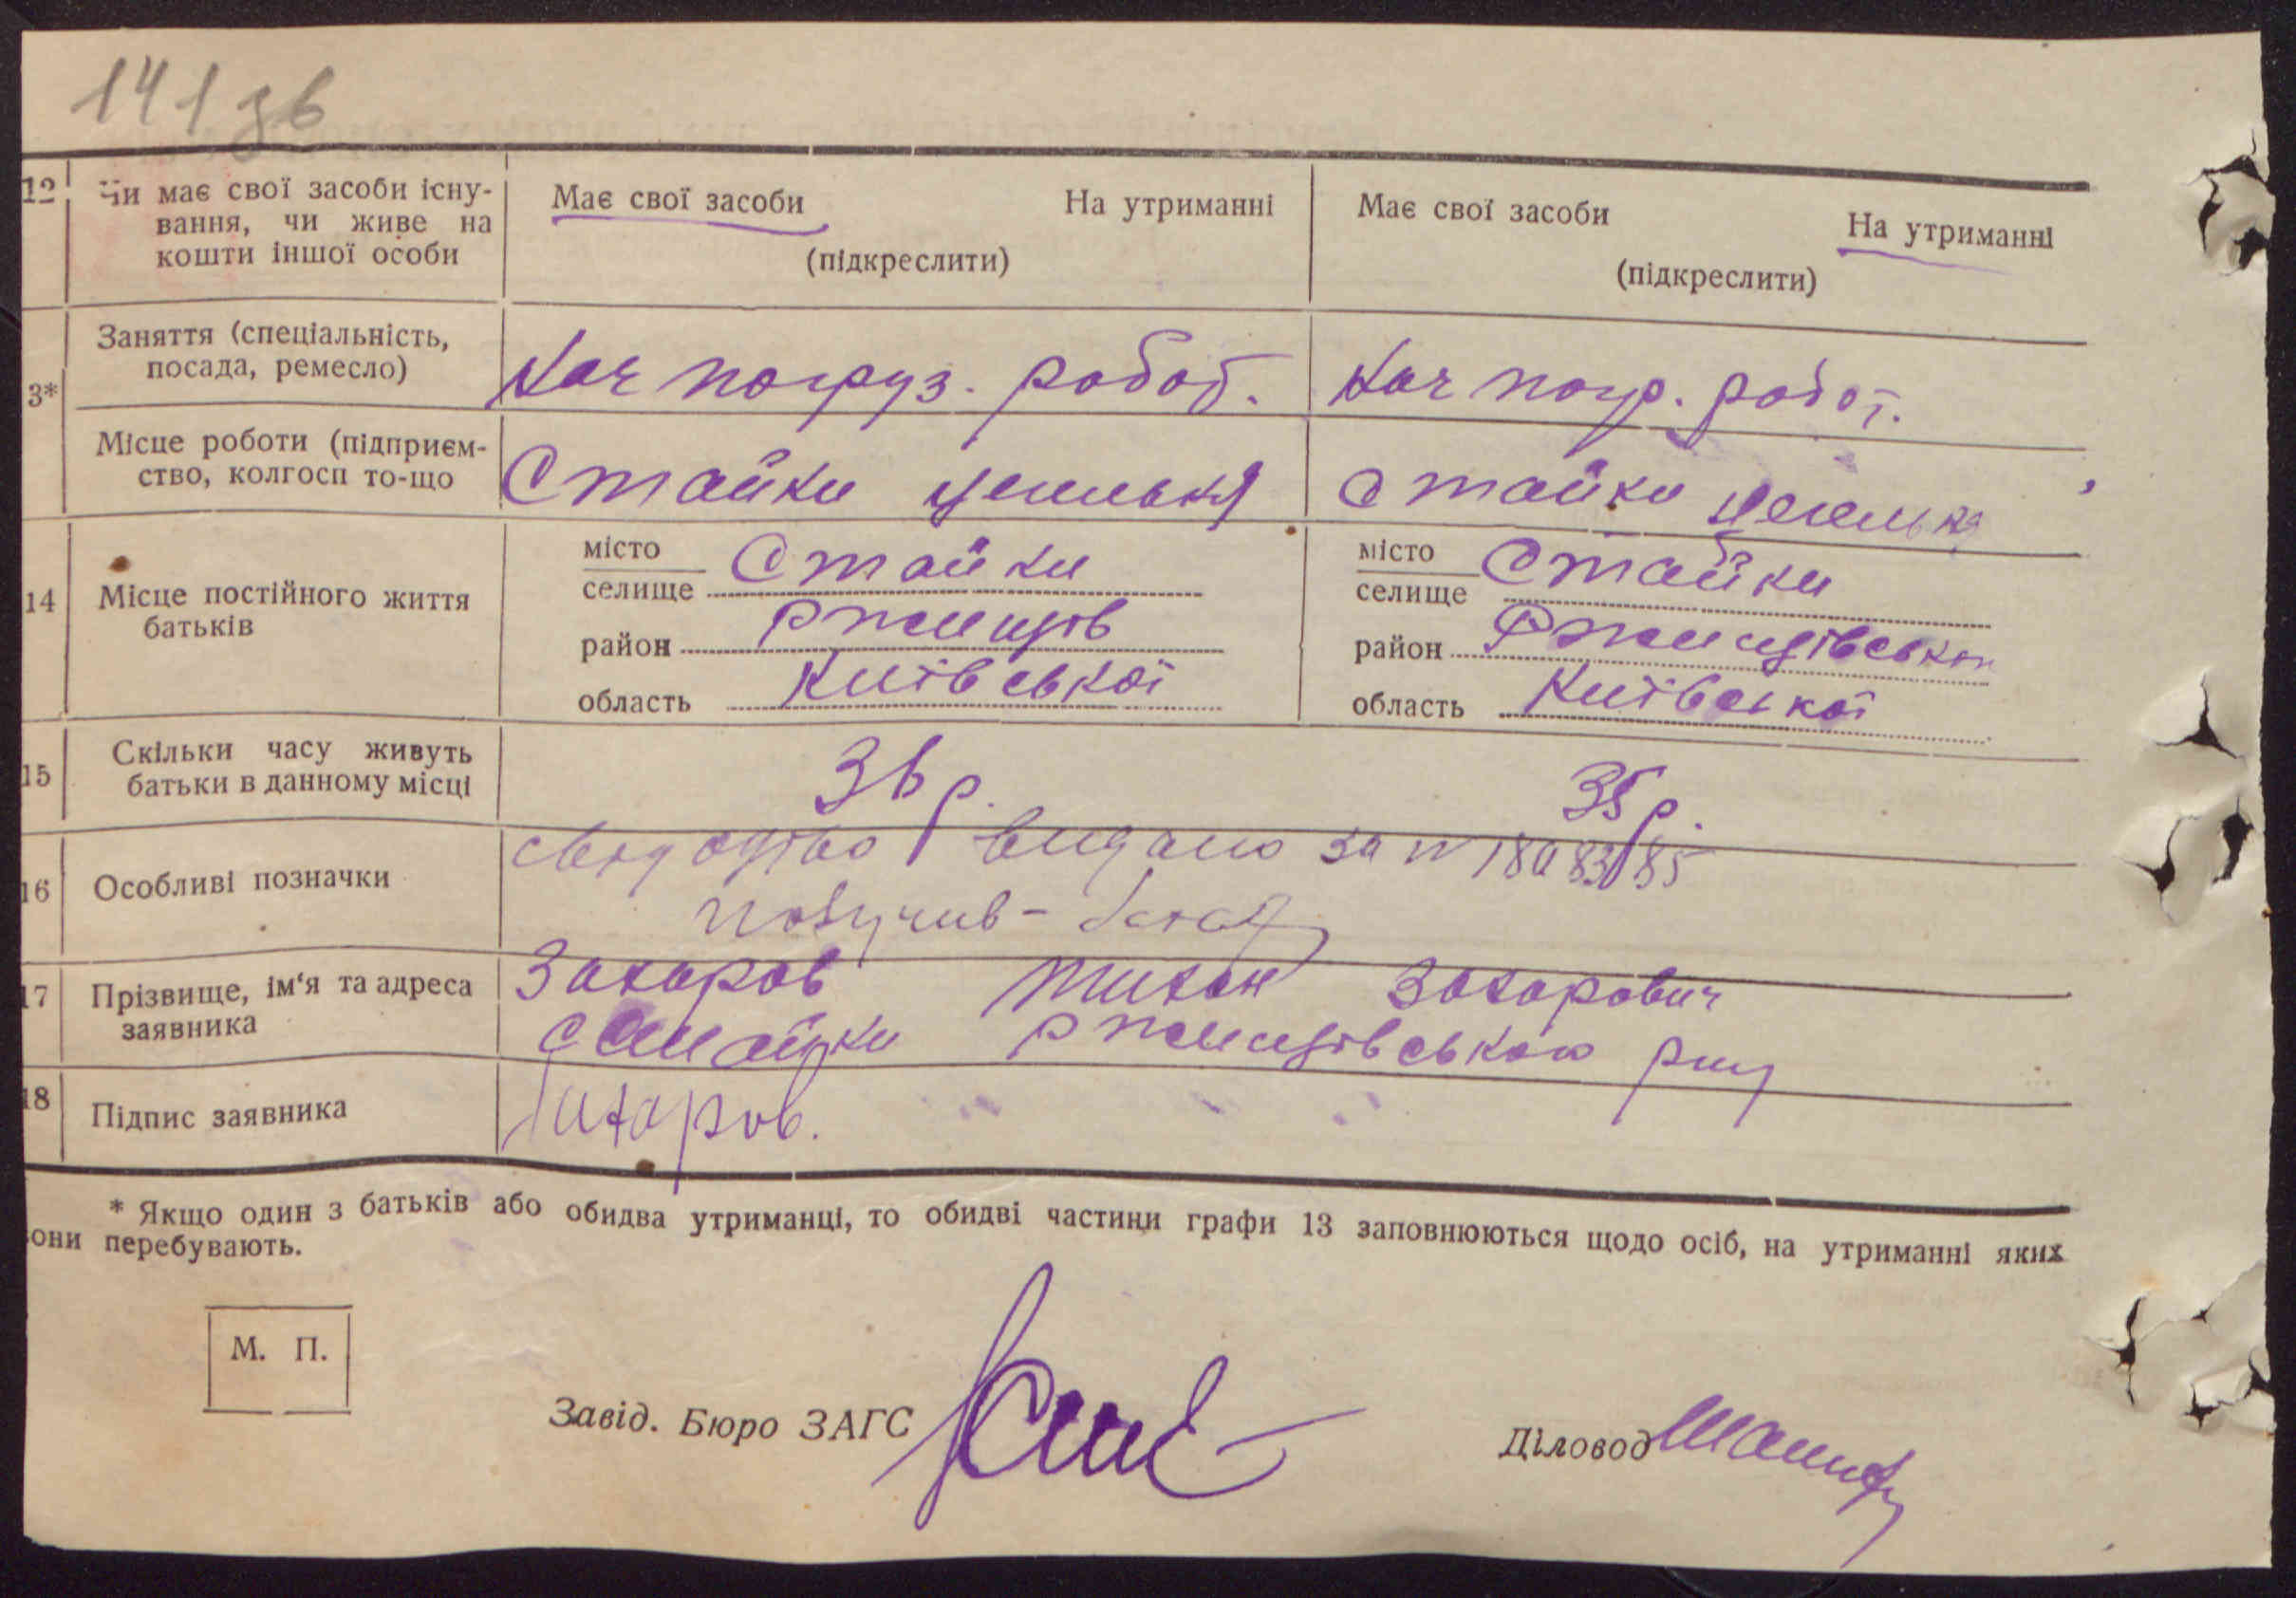 141 зв
12 Чи має свої засоби існу- Має свої засоби На утриманні Має свої засоби На утриманні
вання, чи живе на
кошти іншої особи (підкреслити) (підкреслити)
Заняття (спеціальність,
посада, ремесло) Нач погруз. робот. Нач погр. робот.
3*
Місце роботи (підприєм-
ство, колгосп то-що Стайки Стайки
14 Місце постійного життя
батьків
місто Стайки місто Стайки
селище селище
район Ржищів район Ржищівськ
область Київської область Київської
15 Скільки часу живуть
батьки в данному місці 36 р. 35 р.
16 Особливі позначки видано за №
получив –
17 Прізвище, ім'я та адреса
заявника Захаров Тихон Захарович
Стайки Ржищівського р-ну
18 Підпис заявника Захаров.
* Якщо один з батьків або обидва утриманці, то обидві частини графи 13 заповнюються щодо осіб, на утриманні яких
вони перебувають.
М. П.
Завід. Бюро ЗАГС
Діловод